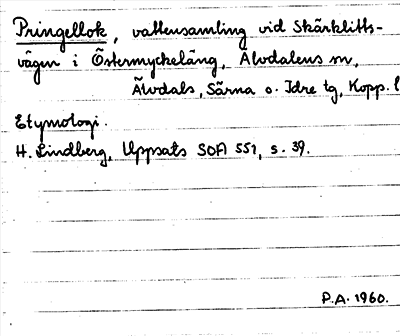 Pringellok, vattensamling vid Skärklitts-
vägen i Östermyckeläng, Älvdalens sn,
Älvdals, Särna o. Idre tg, Kopp. l
Etymologi.
H. Lindberg, Uppsats SOFI 551, s. 39.
P.A. 1960.